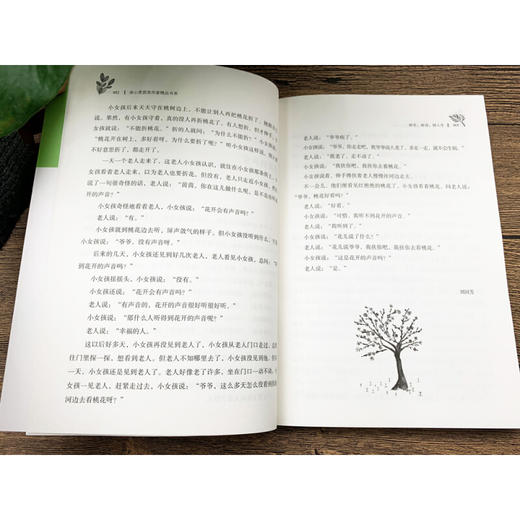 小女孩后来天天守在桃树边上,不能让别人再把桃花折了。
果然,有小女孩守着,真的没人再折桃花了。有人想折,但还没伸手,小
女孩就说:“不能折桃花。”折的人就问:“为什么不能折?”小女孩说:
“桃花开在树上,多好看呀,折了,就不好看了。”听小女孩这样说,大人
不好意思折了,都走开了。
一天一个老人走来了,这老人小女孩认识,就住在小女孩
看着看着老人,以为他要折花。但老人只走近小
说了一句很奇怪的话,老人说:“茵茵,你在这儿做什么呢,是不是在
开的声音?”
小女孩奇怪地看着老人,小女孩说:“花开会有声音吗?”
老人说:“有。”
小女孩就到桃花边去听,屏声敛气的样子。但小女孩没听到
小女孩说:“爷爷,没有声音呀。”
后来的几天,小女孩还见到好几次老人,老人看见小女孩,总问:
到花开的声音吗?”
小女孩摇摇头,小女孩说:“没有。”
小女孩还说:“花开会有声音吗?”
老人说:“有声音的,花开的声音很好听很好听。”
小女孩说:“那什么人听得到花开的声音呢?”
老人说:“幸福的人。”
这以后好多天,小女孩再没见到老人了,小女孩从老人门口走过,
往门里探一探,想看到老人。但老人不知哪里去了,小女孩没见到他。
天,小女孩还是见到老人了。老人好像老了许多,坐在门口一动不动,
女孩一见老人,赶紧走过去,小女孩说:“爷爷,这么多天怎么没看到你
河边去看桃花呀?”
老人说:“爷爷病了。”
老人说:“我老了,走不动了。”
小女孩说:“爷爷,我扶你去看桃花。”
小女孩说着,伸手搀扶老人慢慢往河边去。
不一会儿,他们便看见红艳艳的桃花了,小女孩看着桃花,问老人说:
“爷爷,桃花好看吗?”
老人说:“好看。”
小女孩说:“可惜,我听不到花开的声音。”
老人说:“我听到了。”
小女孩说:“花儿说了什么?”
老人说:“花儿说爷爷,我扶你,我扶你去看桃花。”
小女孩说:“这是花开的声音吗?”
老人说:“是。”